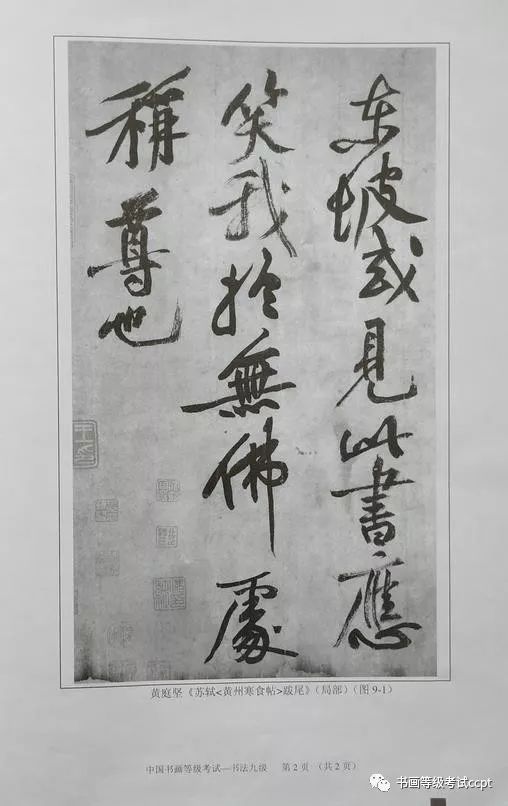 东坡或见此書應
笑我於無佛處
稱尊也
黄庭坚《苏轼<黄州寒食帖>跋尾》(局部)(图9-1)
中国书画等级考试—书法九级 第2页 (共2页)
书画等级考试ccpt